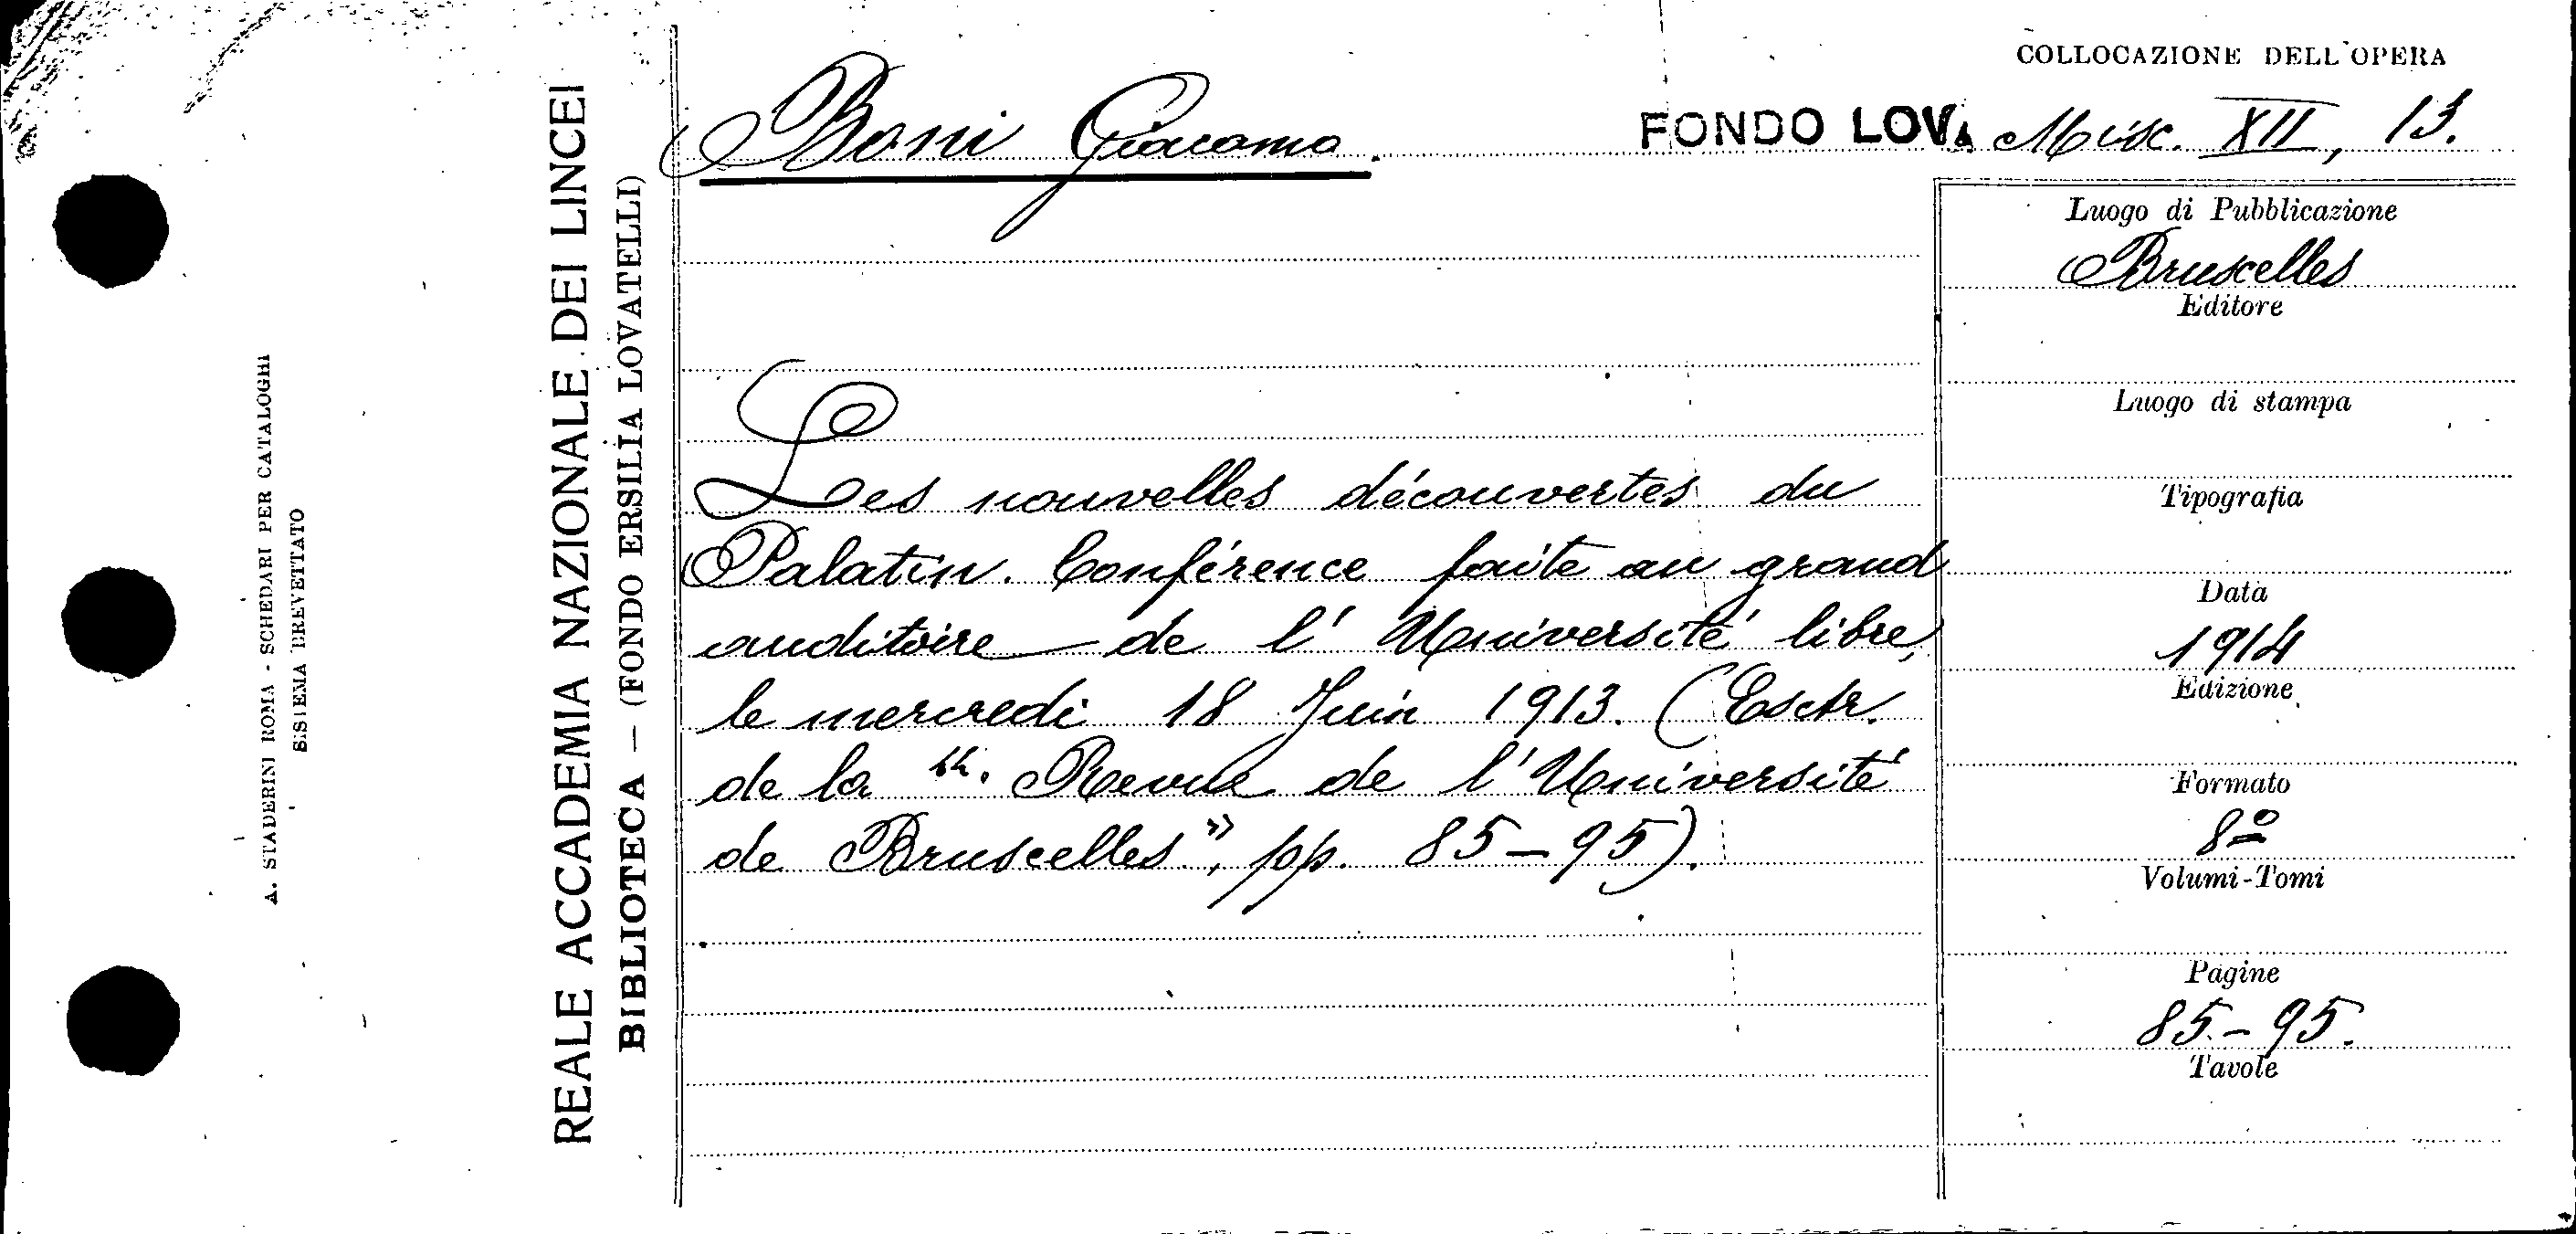 COLLOCAZIONE DELL'OPERA
Boni Giacomo.
FONDO LOV. Misc. XII, 13.
REALE ACCADEMIA NAZIONALE DEI LINCEI
BIBLIOTECA — (FONDO ERSILIA LOVATELLI)
A. STADERINI ROMA - SCHEDARI PER CATALOGHI
SISTEMA BREVETTATO
Les nouvelles découvertes du
Palatin. Conférence faite au grand
auditoire de l'Université libre,
le mercredi 18 Juin 1913. (Extr.
de la "Revue de l'Université
de Bruxelles", pp. 85-95).
Luogo di Pubblicazione
Bruxelles
Editore
Luogo di stampa
Tipografia
Data
1914
Edizione
Formato
8º
Volumi-Tomi
Pagine
85-95.
Tavole